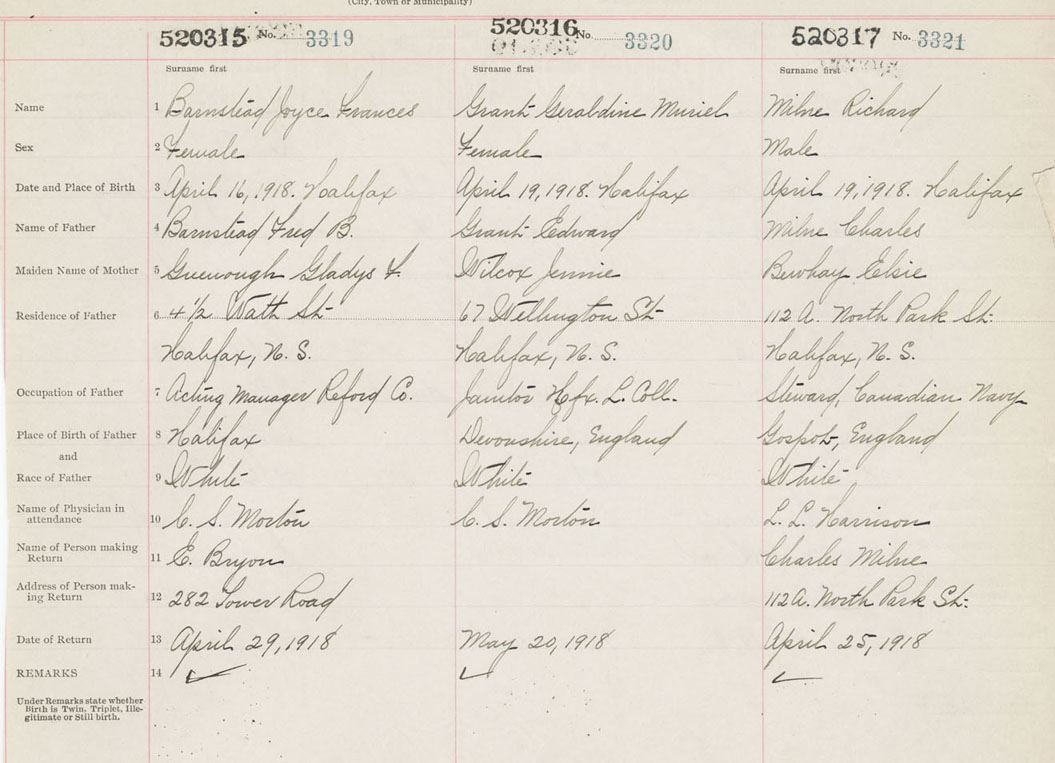 (City, Town or Municipality)
520315 No. 3319 520316 No. 3320 520317 No. 3321
Surname first Surname first Surname first
Name 1 Barnstead Joyce Frances Grant Geraldine Muriel Milne Richard
Sex 2 Female Female Male
Date and Place of Birth 3 April 16, 1918. Halifax April 19, 1918. Halifax April 19, 1918. Halifax
Name of Father 4 Barnstead Fred B. Grant Edward Milne Charles
Maiden Name of Mother 5 Gladys F. Wilcox Jennie Elsie
Residence of Father 6 4 1/2 Watt St. 67 Wellington St. 112 A. North Park St.
Halifax, N. S. Halifax, N. S. Halifax, N. S.
Occupation of Father 7 Acting Manager Reford Co. Janitor Hfx. L. Coll. Steward, Canadian Navy
Place of Birth of Father 8 Halifax Devonshire, England Gosport, England
and
Race of Father 9 White White White
Name of Physician in
attendance 10 C. S. Morton C. S. Morton L. L. Harrison
Name of Person making
Return 11 E. Bryon Charles Milne
Address of Person mak-
ing Return 12 282 Tower Road 112 A. North Park St.
Date of Return 13 April 29, 1918 May 20, 1918 April 25, 1918
REMARKS 14
Under Remarks state whether
Birth is Twin, Triplet, Ille-
gitimate or Still birth.